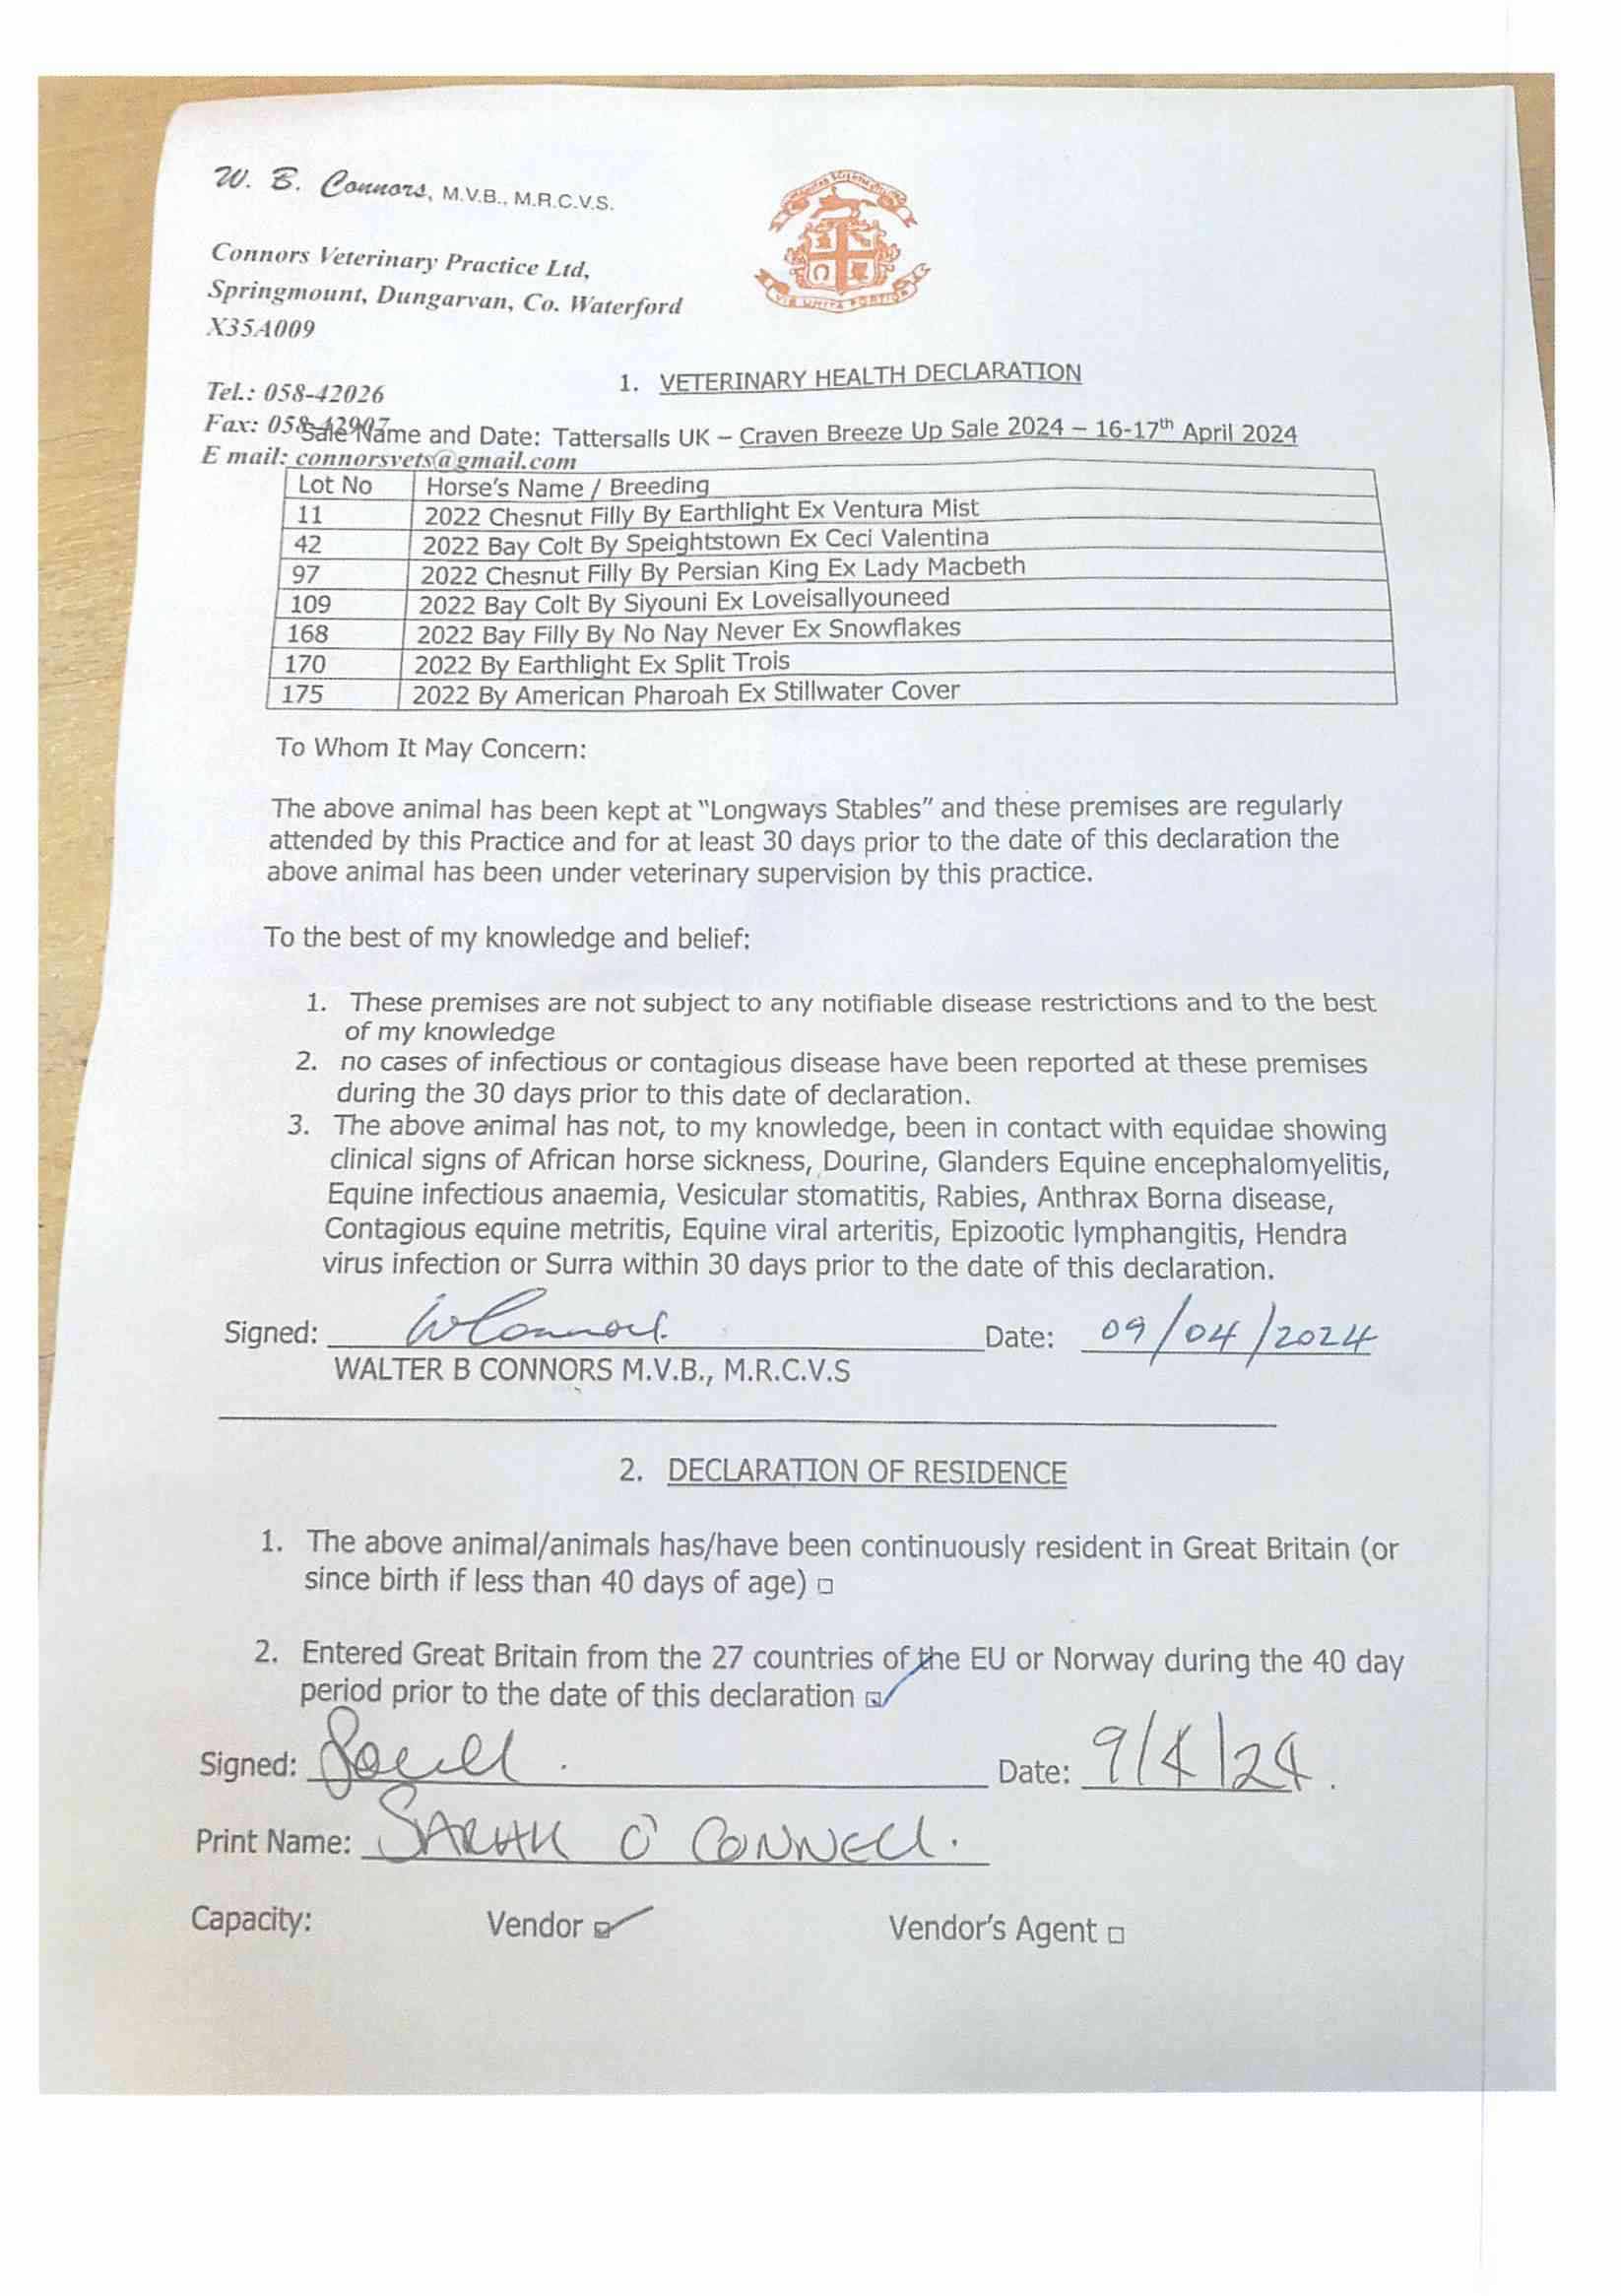 W. B. Connors, M.V.B., M.R.C.V.S.
Connors Veterinary Practice Ltd,
Springmount, Dungarvan, Co. Waterford
X35A009
Tel.: 058-42026
Fax: 058-42907
E mail: connorsvets@gmail.com
VIS UNITA FORTIOR
1. VETERINARY HEALTH DECLARATION
Sale Name and Date: Tattersalls UK – Craven Breeze Up Sale 2024 – 16-17th April 2024
Lot No Horse's Name / Breeding
11 2022 Chesnut Filly By Earthlight Ex Ventura Mist
42 2022 Bay Colt By Speightstown Ex Ceci Valentina
97 2022 Chesnut Filly By Persian King Ex Lady Macbeth
109 2022 Bay Colt By Siyouni Ex Loveisallyouneed
168 2022 Bay Filly By No Nay Never Ex Snowflakes
170 2022 By Earthlight Ex Split Trois
175 2022 By American Pharoah Ex Stillwater Cover
To Whom It May Concern:
The above animal has been kept at "Longways Stables" and these premises are regularly
attended by this Practice and for at least 30 days prior to the date of this declaration the
above animal has been under veterinary supervision by this practice.
To the best of my knowledge and belief:
1. These premises are not subject to any notifiable disease restrictions and to the best
of my knowledge
2. no cases of infectious or contagious disease have been reported at these premises
during the 30 days prior to this date of declaration.
3. The above animal has not, to my knowledge, been in contact with equidae showing
clinical signs of African horse sickness, Dourine, Glanders Equine encephalomyelitis,
Equine infectious anaemia, Vesicular stomatitis, Rabies, Anthrax Borna disease,
Contagious equine metritis, Equine viral arteritis, Epizootic lymphangitis, Hendra
virus infection or Surra within 30 days prior to the date of this declaration.
Signed: WConnors. Date: 09/04/2024
WALTER B CONNORS M.V.B., M.R.C.V.S
2. DECLARATION OF RESIDENCE
1. The above animal/animals has/have been continuously resident in Great Britain (or
since birth if less than 40 days of age) □
2. Entered Great Britain from the 27 countries of the EU or Norway during the 40 day
period prior to the date of this declaration ☑
Signed: Date: 9/4/24.
Print Name: SARAH O'CONNELL.
Capacity: Vendor ☑ Vendor's Agent □